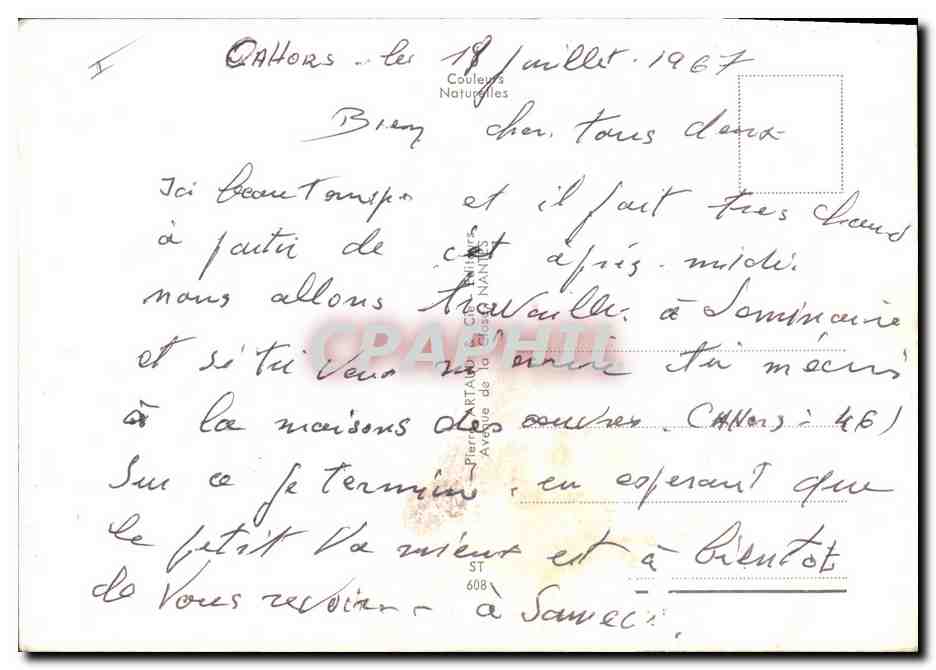 I
CAHORS le 18 juillet 1967
Couleurs
Naturelles
Bien cher tous deux
Ici beau temps et il fait tres chaud
à partir de cet après-midi.
nous allons travailler à Seminaire
et si tu veux m'ecrire tu mécris
à la maisons des œuvres. (CAHors : 46)
Sur ce je termine, en esperant que
le petit va mieux est à bientot
de vous revoir - à Samedi.
Pierre ARTAUD & Cie - Editeurs
Avenue de la Close - NANTES
ST
608
CPAPHIL